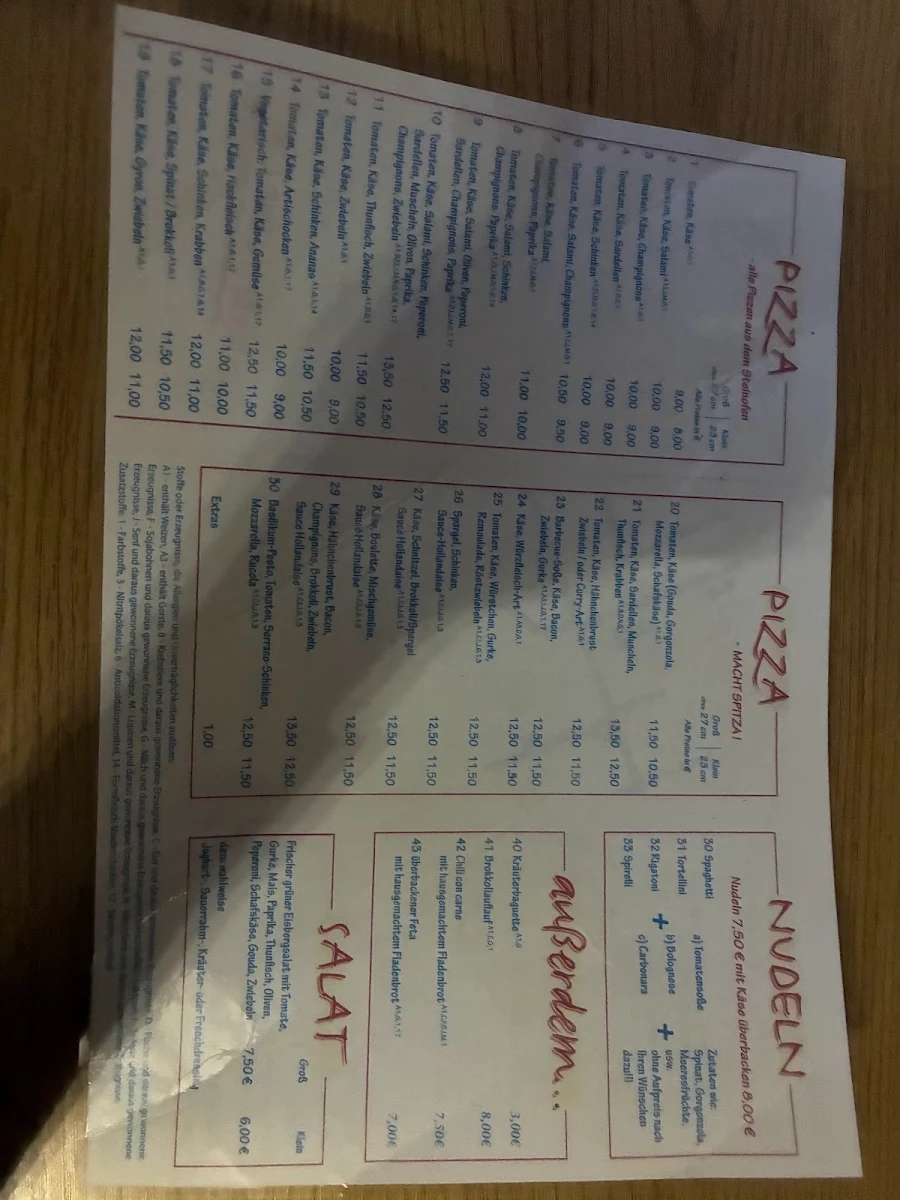 PIZZA
- alle Pizzen aus dem Steinofen
Groß | Klein
27 cm | 23 cm
Alle Preise in €
1 Tomaten, Käse 9,00 8,00
2 Tomaten, Käse, Salami 10,00 9,00
3 Tomaten, Käse, Champignons 10,00 9,00
4 Tomaten, Käse, Sardellen 10,00 9,00
5 Tomaten, Käse, Schinken 10,00 9,00
6 Tomaten, Käse, Salami, Champignons 10,50 9,50
7 Tomaten, Käse, Salami,
Champignons, Paprika 11,00 10,00
8 Tomaten, Käse, Salami, Schinken,
Champignons, Paprika 12,00 11,00
9 Tomaten, Käse, Salami, Oliven, Peperoni,
Sardellen, Champignons, Paprika 12,50 11,50
10 Tomaten, Käse, Salami, Schinken, Peperoni,
Sardellen, Muscheln, Oliven, Paprika,
Champignons, Zwiebeln 13,50 12,50
11 Tomaten, Käse, Thunfisch, Zwiebeln 11,50 10,50
12 Tomaten, Käse, Zwiebeln 10,00 9,00
13 Tomaten, Käse, Schinken, Ananas 11,50 10,50
14 Tomaten, Käse, Artischocken 10,00 9,00
15 Vegetarisch: Tomaten, Käse, Gemüse 12,50 11,50
16 Tomaten, Käse, Hackfleisch 11,00 10,00
17 Tomaten, Käse, Schinken, Krabben 12,00 11,00
18 Tomaten, Käse, Spinat / Brokkoli 11,50 10,50
19 Tomaten, Käse, Gyros, Zwiebeln 12,00 11,00
PIZZA
- MACHT SPITZA!
Groß | Klein
27 cm | 23 cm
Alle Preise in €
20 Tomaten, Käse (Gouda, Gorgonzola,
Mozzarella, Schafskäse) 11,50 10,50
21 Tomaten, Käse, Sardellen, Muscheln,
Thunfisch, Krabben 13,50 12,50
22 Tomaten, Käse, Hähnchenbrust
Zwiebeln (oder Curry-Art) 12,50 11,50
23 Barbecue-Soße, Käse, Bacon,
Zwiebeln, Gurke 12,50 11,50
24 Käse, Würzfleisch-Art 12,50 11,50
25 Tomaten, Käse, Würstchen, Gurke,
Remoulade, Röstzwiebeln 12,50 11,50
26 Spargel, Schinken,
Sauce-Hollandaise 12,50 11,50
27 Käse, Schnitzel, Brokkoli/Spargel
Sauce Hollandaise 12,50 11,50
28 Käse, Boulette, Mischgemüse,
Sauce Hollandaise 12,50 11,50
29 Käse, Hähnchenbrust, Bacon,
Champignons, Brokkoli, Zwiebeln,
Sauce Hollandaise 13,50 12,50
30 Basilikum-Pesto, Tomaten, Serrano-Schinken,
Mozzarella, Rucola 12,50 11,50
Extras 1,00
NUDELN
Nudeln 7,50 € mit Käse überbacken 8,00 €
30 Spaghetti
31 Tortellini
32 Rigatoni
33 Spirelli
+
a) Tomatensoße
b) Bolognese
c) Carbonara
+
Zutaten wie:
Spinat, Gorgonzola,
Meeresfrüchte,
usw.
ohne Aufpreis nach
Ihren Wünschen
dazu!!!
außerdem...
40 Kräuterbaguette 3,00€
41 Brokkoliauflauf 8,00€
42 Chili con carne
mit hausgemachtem Fladenbrot 7,50€
43 überbackener Feta
mit hausgemachtem Fladenbrot 7,00€
SALAT
Groß Klein
Frischer grüner Eisbergsalat mit Tomate,
Gurke, Mais, Paprika, Thunfisch, Oliven,
Peperoni, Schafskäse, Gouda, Zwiebeln 7,50 € 6,00 €
dazu wahlweise
Joghurt-, Sauerrahm-, Kräuter- oder Frenchdressing
Stoffe oder Erzeugnisse, die Allergien und Unverträglichkeiten auslösen:
A1 - enthält Weizen, A3 - enthält Gerste, B - Krebstiere und daraus gewonnene Erzeugnisse, C - Eier und
Erzeugnisse, F - Sojabohnen und daraus gewonnene Erzeugnisse, G - Milch und daraus gewonnene
Erzeugnisse, J - Senf und daraus gewonnene Erzeugnisse, M - Lupinen und daraus gewonnene
Zusatzstoffe: 1 - Farbstoffe, 3 - Nitritpökelsalz, 6 - Antioxidationsmittel, 14 - Formfleisch